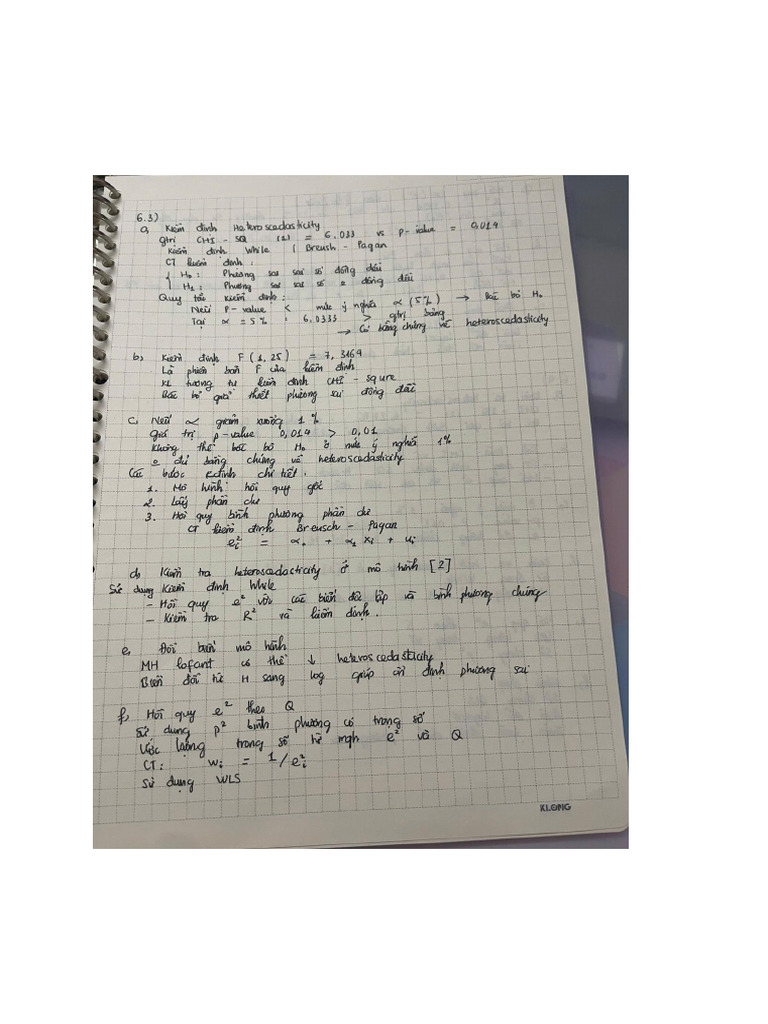 6.3)
a, Kiểm định Heteroscedasticity
gtrị CHI - SQ (1) = 6.033 vs P-value = 0,014
Kiểm định While / Breush - Pagan
CT kiểm định :
H₀ : Phương sai sai số đồng đều
H₁ : Phương sai sai số o đồng đều
Quy tắc kiểm định :
Nếu P-value < mức ý nghĩa α (5%) → Bác bỏ H₀
Tại α = 5% : 6,0333 > gtrị bảng
→ Có bằng chứng về heteroscedasticity
b, Kiểm định F (1, 25) = 7,3169
Là phiên bản F của kiểm định
KL tương tự kiểm định CHI - squre
Bác bỏ giả thiết phương sai đồng đều
c, Nếu α giảm xuống 1%
Giá trị p-value 0,014 > 0,01
Không thể bác bỏ H₀ ở mức ý nghĩa 1%
o đủ bằng chứng về heteroscedasticity
Các bước kđịnh chi tiết :
1. Mô hình hồi quy gốc
2. Lấy phần dư
3. Hồi quy bình phương phần dư
CT kiểm định Breusch - Pagan
eᵢ² = α₀ + α₂ xᵢ + uᵢ
d, Kiểm tra heteroscedasticity ở mô hình [2]
Sử dụng Kiểm định While
- Hồi quy e² với các biến độc lập và bình phương chúng
- Kiểm tra R² và kiểm định.
e, Đổi biến mô hình
MH lofant có thể ↓ heteroscedasticity
Biến đổi từ H sang log giúp ổn định phương sai
f, Hồi quy e² theo Q
Sử dụng p² bình phương có trọng số
Ước lượng trọng số từ mqh e² và Q
CT: wᵢ = 1/eᵢ²
Sử dụng WLS
KLONG